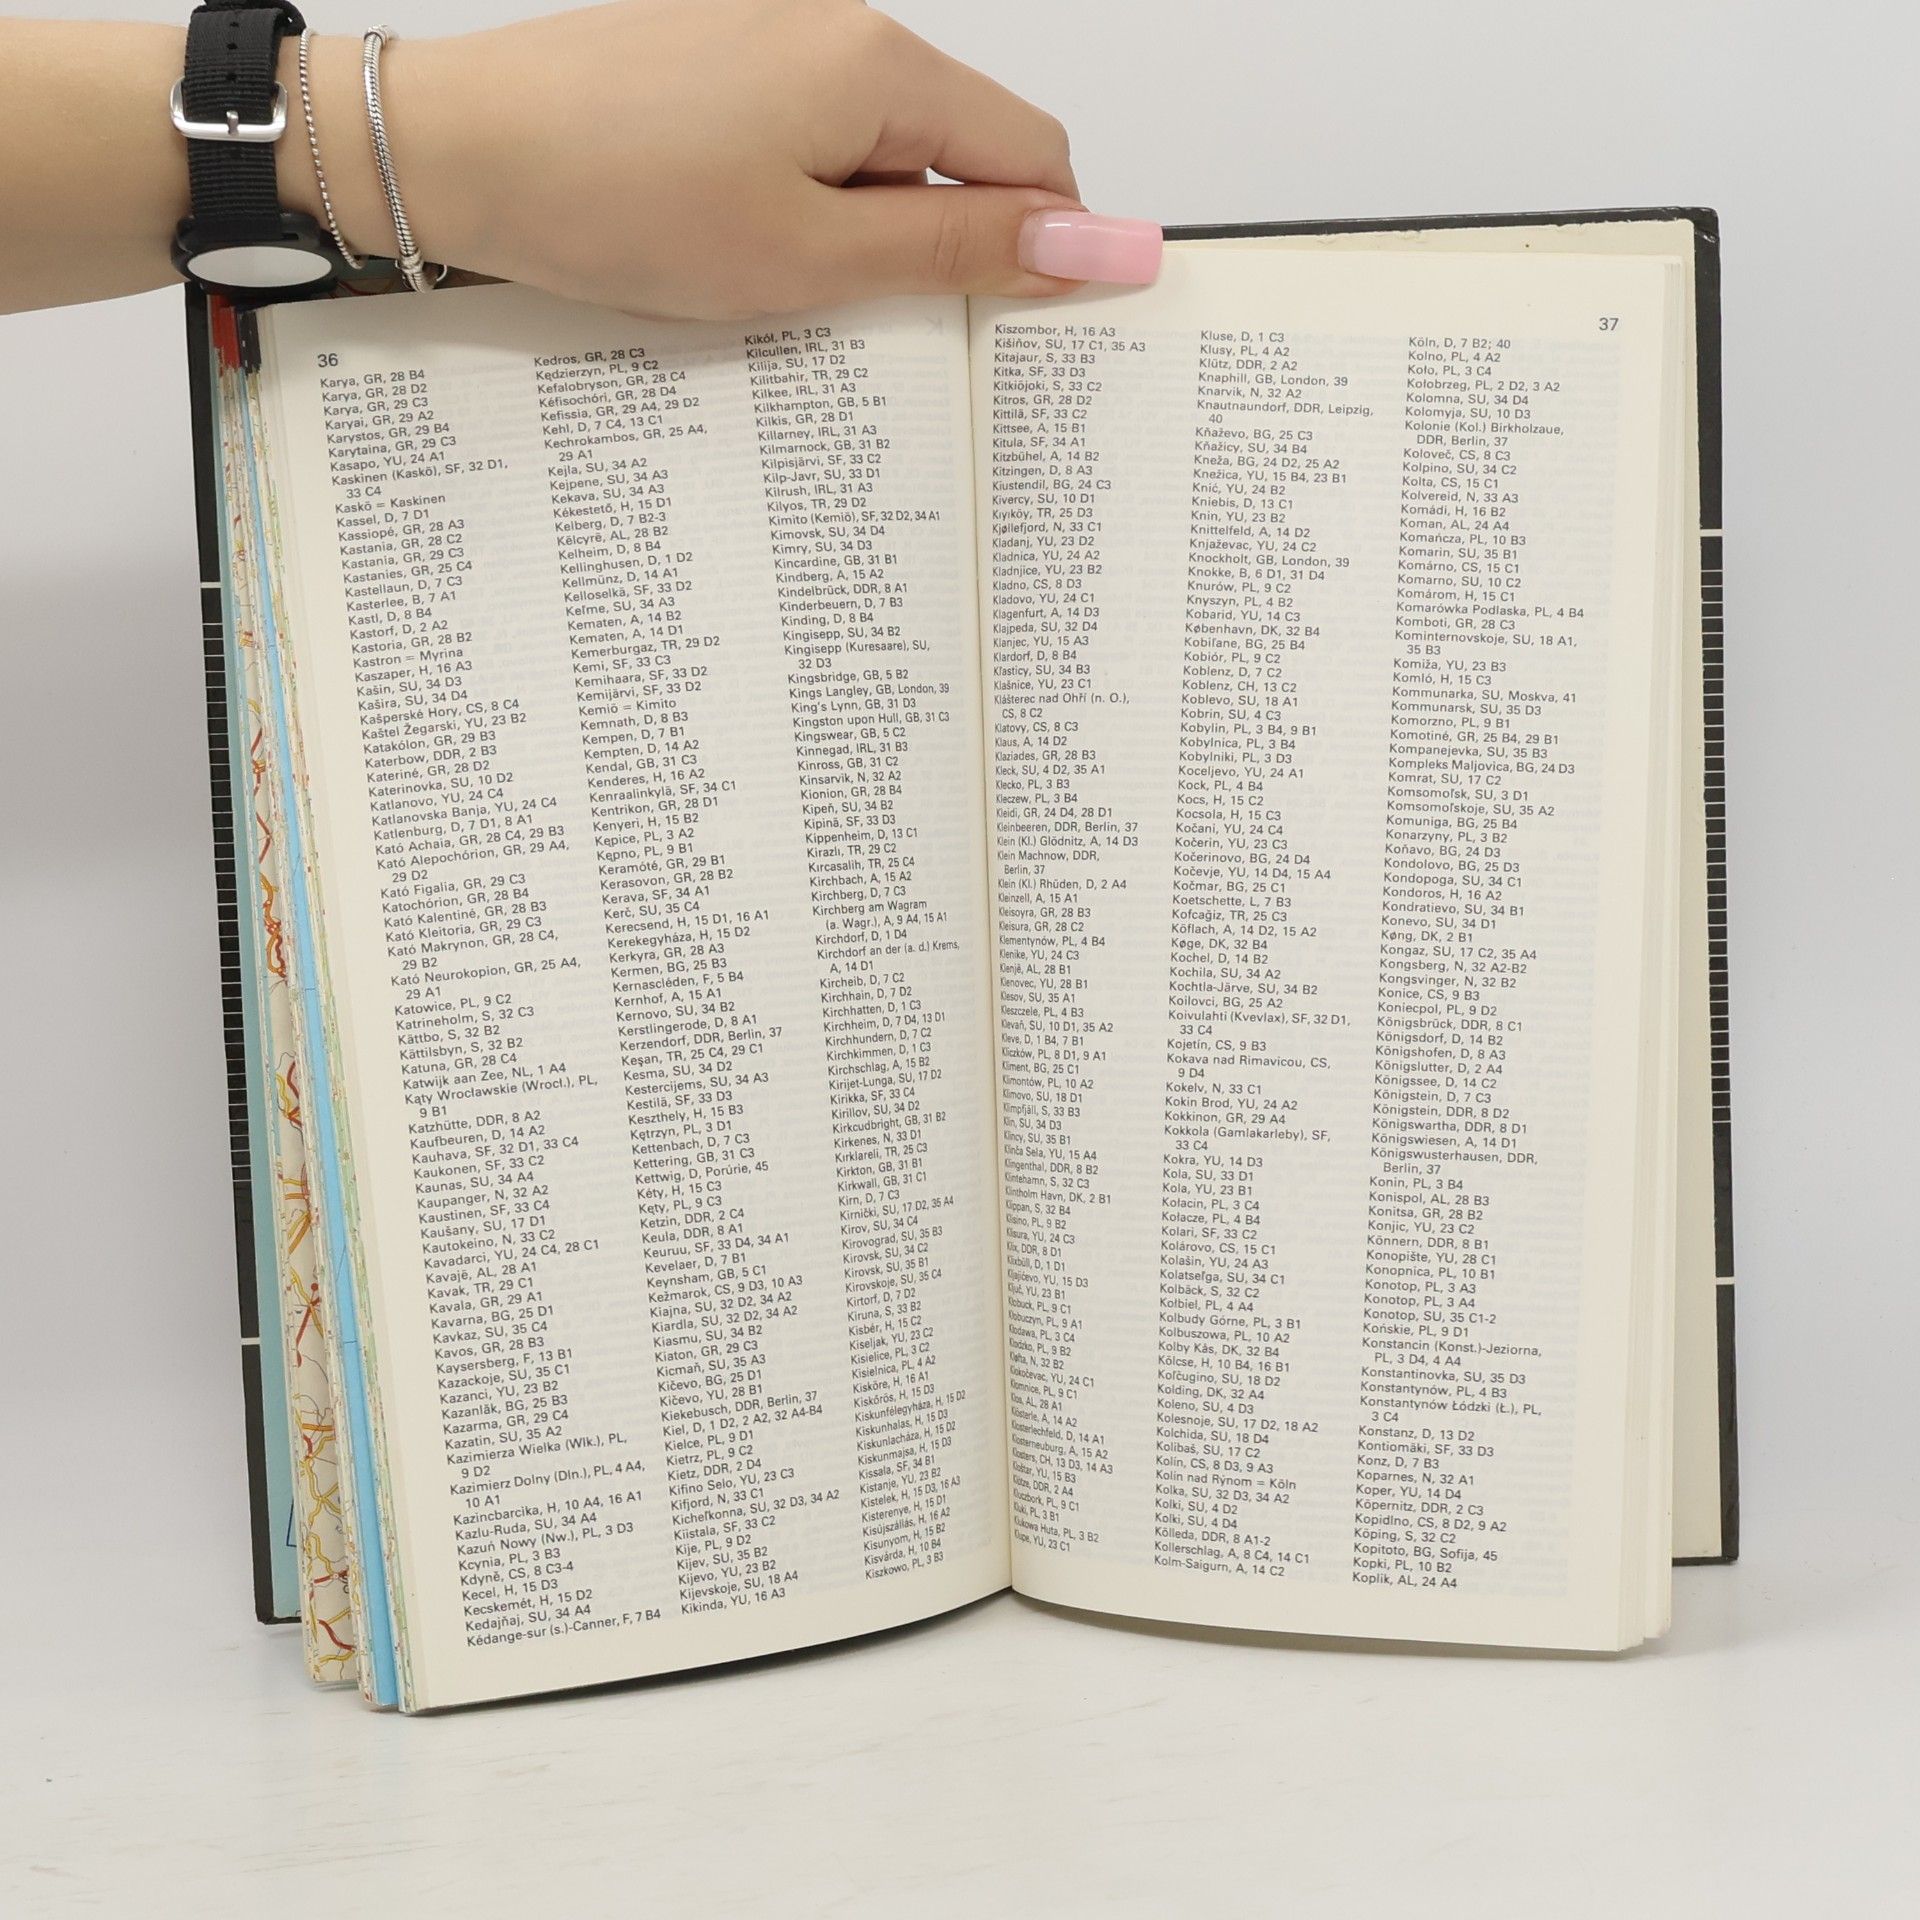 36
Karya, GR, 28 B4
Karya, GR, 28 D2
Karya, GR, 29 C3
Karyai, GR, 29 A2
Karystos, GR, 29 B4
Karytaina, GR, 29 C3
Kasapo, YU, 24 A1
Kaskinen (Kaskö), SF, 32 D1,
33 C4
Kaskö = Kaskinen
Kassel, D, 7 D1
Kassiopé, GR, 28 A3
Kastania, GR, 28 C2
Kastania, GR, 29 C3
Kastanies, GR, 25 C4
Kastellaun, D, 7 C3
Kasterlee, B, 7 A1
Kastl, D, 8 B4
Kastorf, D, 2 A2
Kastoria, GR, 28 B2
Kastron = Myrina
Kaszaper, H, 16 A3
Kašin, SU, 34 D3
Kašira, SU, 34 D4
Kašperské Hory, CS, 8 C4
Kaštel Žegarski, YU, 23 B2
Katakólon, GR, 29 B3
Katerbow, DDR, 2 B3
Kateriné, GR, 28 D2
Katerinovka, SU, 10 D2
Katlanovo, YU, 24 C4
Katlanovska Banja, YU, 24 C4
Katlenburg, D, 7 D1, 8 A1
Kató Achaia, GR, 28 C4, 29 B3
Kató Alepochórion, GR, 29 A4,
29 D2
Kató Figalia, GR, 29 C3
Katochórion, GR, 28 B4
Kató Kalentiné, GR, 28 B3
Kató Kleitoria, GR, 29 C3
Kató Makrynon, GR, 28 C4,
29 B2
Kató Neurokopion, GR, 25 A4,
29 A1
Katowice, PL, 9 C2
Katrineholm, S, 32 C3
Kättbo, S, 32 B2
Kättilsbyn, S, 32 B2
Katuna, GR, 28 C4
Katwijk aan Zee, NL, 1 A4
Kąty Wrocławskie (Wrocł.), PL,
9 B1
Katzhütte, DDR, 8 A2
Kaufbeuren, D, 14 A2
Kauhava, SF, 32 D1, 33 C4
Kaukonen, SF, 33 C2
Kaunas, SU, 34 A4
Kaupanger, N, 32 A2
Kaustinen, SF, 33 C4
Kaušany, SU, 17 D1
Kautokeino, N, 33 C2
Kavadarci, YU, 24 C4, 28 C1
Kavajë, AL, 28 A1
Kavak, TR, 29 C1
Kavala, GR, 29 A1
Kavarna, BG, 25 D1
Kavkaz, SU, 35 C4
Kavos, GR, 28 B3
Kaysersberg, F, 13 B1
Kazackoje, SU, 35 C1
Kazanci, YU, 23 B2
Kazanlăk, BG, 25 B3
Kazarma, GR, 29 C4
Kazatin, SU, 35 A2
Kazimierza Wielka (Wlk.), PL,
9 D2
Kazimierz Dolny (Dln.), PL, 4 A4,
10 A1
Kazincbarcika, H, 10 A4, 16 A1
Kazlu-Ruda, SU, 34 A4
Kazuń Nowy (Nw.), PL, 3 D3
Kcynia, PL, 3 B3
Kdyně, CS, 8 C3-4
Kecel, H, 15 D3
Kecskemét, H, 15 D2
Kedajňaj, SU, 34 A4
Kédange-sur (s.)-Canner, F, 7 B4
Kedros, GR, 28 C3
Kędzierzyn, PL, 9 C2
Kefalobryson, GR, 28 C4
Kéfisochóri, GR, 28 D4
Kefissia, GR, 29 A4, 29 D2
Kehl, D, 7 C4, 13 C1
Kechrokambos, GR, 25 A4,
29 A1
Kejla, SU, 34 A2
Kejpene, SU, 34 A3
Kekava, SU, 34 A3
Kékestető, H, 15 D1
Kelberg, D, 7 B2-3
Këlcyrë, AL, 28 B2
Kelheim, D, 8 B4
Kellinghusen, D, 1 D2
Kellmünz, D, 14 A1
Kelloselkä, SF, 33 D2
Keľme, SU, 34 A3
Kematen, A, 14 B2
Kematen, A, 14 D1
Kemerburgaz, TR, 29 D2
Kemi, SF, 33 C3
Kemihaara, SF, 33 D2
Kemijärvi, SF, 33 D2
Kemiö = Kimito
Kemnath, D, 8 B3
Kempen, D, 7 B1
Kempten, D, 14 A2
Kendal, GB, 31 C3
Kenderes, H, 16 A2
Kenraalinkylä, SF, 34 C1
Kentrikon, GR, 28 D1
Kenyeri, H, 15 B2
Kępice, PL, 3 A2
Kępno, PL, 9 B1
Keramóté, GR, 29 B1
Kerasovon, GR, 28 B2
Kerava, SF, 34 A1
Kerč, SU, 35 C4
Kerecsend, H, 15 D1, 16 A1
Kerekegyháza, H, 15 D2
Kerkyra, GR, 28 A3
Kermen, BG, 25 B3
Kernascléden, F, 5 B4
Kernhof, A, 15 A1
Kernovo, SU, 34 B2
Kerstlingerode, D, 8 A1
Kerzendorf, DDR, Berlin, 37
Keşan, TR, 25 C4, 29 C1
Kesma, SU, 34 D2
Kestercijems, SU, 34 A3
Kestilä, SF, 33 D3
Keszthely, H, 15 B3
Kętrzyn, PL, 3 D1
Kettenbach, D, 7 C3
Kettering, GB, 31 C3
Kettwig, D, Porúrie, 45
Kéty, H, 15 C3
Kęty, PL, 9 C3
Ketzin, DDR, 2 C4
Keula, DDR, 8 A1
Keuruu, SF, 33 D4, 34 A1
Kevelaer, D, 7 B1
Keynsham, GB, 5 C1
Kežmarok, CS, 9 D3, 10 A3
Kiajna, SU, 32 D2, 34 A2
Kiardla, SU, 32 D2, 34 A2
Kiasmu, SU, 34 B2
Kiaton, GR, 29 C3
Kicmaň, SU, 35 A3
Kičevo, BG, 25 D1
Kičevo, YU, 28 B1
Kiekebusch, DDR, Berlin, 37
Kiel, D, 1 D2, 2 A2, 32 A4-B4
Kielce, PL, 9 D1
Kietrz, PL, 9 C2
Kietz, DDR, 2 D4
Kifino Selo, YU, 23 C3
Kifjord, N, 33 C1
Kicheľkonna, SU, 32 D3, 34 A2
Kiistala, SF, 33 C2
Kije, PL, 9 D2
Kijev, SU, 35 B2
Kijevo, YU, 23 B2
Kijevskoje, SU, 18 A4
Kikinda, YU, 16 A3
Kikół, PL, 3 C3
Kilcullen, IRL, 31 B3
Kilija, SU, 17 D2
Kilitbahir, TR, 29 C2
Kilkee, IRL, 31 A3
Kilkhampton, GB, 5 B1
Kilkis, GR, 28 D1
Killarney, IRL, 31 A3
Kilmarnock, GB, 31 B2
Kilpisjärvi, SF, 33 C2
Kilp-Javr, SU, 33 D1
Kilrush, IRL, 31 A3
Kilyos, TR, 29 D2
Kimito (Kemiö), SF, 32 D2, 34 A1
Kimovsk, SU, 34 D4
Kimry, SU, 34 D3
Kincardine, GB, 31 B1
Kindberg, A, 15 A2
Kindelbrück, DDR, 8 A1
Kinderbeuern, D, 7 B3
Kinding, D, 8 B4
Kingisepp, SU, 34 B2
Kingisepp (Kuresaare), SU,
32 D3
Kingsbridge, GB, 5 B2
Kings Langley, GB, London, 39
King's Lynn, GB, 31 D3
Kingston upon Hull, GB, 31 C3
Kingswear, GB, 5 C2
Kinnegad, IRL, 31 B3
Kinross, GB, 31 C2
Kinsarvik, N, 32 A2
Kionion, GR, 28 B4
Kipeň, SU, 34 B2
Kipinä, SF, 33 D3
Kippenheim, D, 13 C1
Kirazlı, TR, 29 C2
Kırcasalih, TR, 25 C4
Kirchbach, A, 15 A2
Kirchberg, D, 7 C3
Kirchberg am Wagram
(a. Wagr.), A, 9 A4, 15 A1
Kirchdorf, D, 1 D4
Kirchdorf an der (a. d.) Krems,
A, 14 D1
Kircheib, D, 7 C2
Kirchhain, D, 7 D2
Kirchhatten, D, 1 C3
Kirchheim, D, 7 D4, 13 D1
Kirchhundern, D, 7 C2
Kirchkimmen, D, 1 C3
Kirchschlag, A, 15 B2
Kirijet-Lunga, SU, 17 D2
Kirikka, SF, 33 C4
Kirillov, SU, 34 D2
Kirkcudbright, GB, 31 B2
Kirkenes, N, 33 D1
Kırklareli, TR, 25 C3
Kirkton, GB, 31 B1
Kirkwall, GB, 31 C1
Kirn, D, 7 C3
Kirnički, SU, 17 D2, 35 A4
Kirov, SU, 34 C4
Kirovograd, SU, 35 B3
Kirovsk, SU, 34 C2
Kirovsk, SU, 35 B1
Kirovskoje, SU, 35 C4
Kirtorf, D, 7 D2
Kiruna, S, 33 B2
Kisbér, H, 15 C2
Kiseljak, YU, 23 C2
Kisielice, PL, 3 C2
Kisielnica, PL, 4 A2
Kisköre, H, 16 A1
Kiskőrös, H, 15 D3
Kiskunfélegyháza, H, 15 D2
Kiskunhalas, H, 15 D3
Kiskunlacháza, H, 15 D2
Kiskunmajsa, H, 15 D3
Kissala, SF, 34 B1
Kistanje, YU, 23 B2
Kistelek, H, 15 D3, 16 A3
Kisterenye, H, 15 D1
Kisújszállás, H, 16 A2
Kisunyom, H, 15 B2
Kisvárda, H, 10 B4
Kiszkowo, PL, 3 B3
37
Kiszombor, H, 16 A3
Kišiňov, SU, 17 C1, 35 A3
Kitajaur, S, 33 B3
Kitka, SF, 33 D3
Kitkiöjoki, S, 33 C2
Kitros, GR, 28 D2
Kittilä, SF, 33 C2
Kittsee, A, 15 B1
Kitula, SF, 34 A1
Kitzbühel, A, 14 B2
Kitzingen, D, 8 A3
Kiustendil, BG, 24 C3
Kivercy, SU, 10 D1
Kıyıköy, TR, 25 D3
Kjøllefjord, N, 33 C1
Kladanj, YU, 23 D2
Kladnica, YU, 24 A2
Kladnjice, YU, 23 B2
Kladno, CS, 8 D3
Kladovo, YU, 24 C1
Klagenfurt, A, 14 D3
Klajpeda, SU, 32 D4
Klanjec, YU, 15 A3
Klardorf, D, 8 B4
Klasticy, SU, 34 B3
Klašnice, YU, 23 C1
Klášterec nad Ohří (n. O.),
CS, 8 C2
Klatovy, CS, 8 C3
Klaus, A, 14 D2
Klaziades, GR, 28 B3
Kleck, SU, 4 D2, 35 A1
Klecko, PL, 3 B3
Kleczew, PL, 3 B4
Kleidi, GR, 24 D4, 28 D1
Kleinbeeren, DDR, Berlin, 37
Klein (Kl.) Glödnitz, A, 14 D3
Klein Machnow, DDR,
Berlin, 37
Klein (Kl.) Rhüden, D, 2 A4
Kleinzell, A, 15 A1
Kleisoyra, GR, 28 B3
Kleisura, GR, 28 C2
Klementynów, PL, 4 B4
Klenike, YU, 24 C3
Klenjë, AL, 28 B1
Klenovec, YU, 28 B1
Klesov, SU, 35 A1
Kleszczele, PL, 4 B3
Klevaň, SU, 10 D1, 35 A2
Kleve, D, 1 B4, 7 B1
Kliczków, PL, 8 D1, 9 A1
Kliment, BG, 25 C1
Klimontów, PL, 10 A2
Klimovo, SU, 18 D1
Klimpfjäll, S, 33 B3
Klin, SU, 34 D3
Klincy, SU, 35 B1
Klinča Sela, YU, 15 A4
Klingenthal, DDR, 8 B2
Klintehamn, S, 32 C3
Klintholm Havn, DK, 2 B1
Klippan, S, 32 B4
Klisino, PL, 9 B2
Klisura, YU, 24 C3
Klix, DDR, 8 D1
Klixbüll, D, 1 D1
Kljajićevo, YU, 15 D3
Ključ, YU, 23 B1
Kłobuck, PL, 9 C1
Kłobuczyn, PL, 9 A1
Kłodawa, PL, 3 C4
Kłodzko, PL, 9 B2
Kløfta, N, 32 B2
Klokočevac, YU, 24 C1
Kłomnice, PL, 9 C1
Klos, AL, 28 A1
Klösterle, A, 14 A2
Klosterlechfeld, D, 14 A1
Klosterneuburg, A, 15 A2
Klosters, CH, 13 D3, 14 A3
Kloštar, YU, 15 B3
Klötze, DDR, 2 A4
Kluczbork, PL, 9 C1
Kluki, PL, 3 B1
Klukowa Huta, PL, 3 B2
Klupe, YU, 23 C1
Kluse, D, 1 C3
Klusy, PL, 4 A2
Klütz, DDR, 2 A2
Knaphill, GB, London, 39
Knarvik, N, 32 A2
Knautnaundorf, DDR, Leipzig,
40
Kňaževo, BG, 25 C3
Kňažicy, SU, 34 B4
Kneža, BG, 24 D2, 25 A2
Knežica, YU, 15 B4, 23 B1
Knić, YU, 24 B2
Kniebis, D, 13 C1
Knin, YU, 23 B2
Knittelfeld, A, 14 D2
Knjaževac, YU, 24 C2
Knockholt, GB, London, 39
Knokke, B, 6 D1, 31 D4
Knurów, PL, 9 C2
Knyszyn, PL, 4 B2
Kobarid, YU, 14 C3
København, DK, 32 B4
Kobiľane, BG, 25 B4
Kobiór, PL, 9 C2
Koblenz, D, 7 C2
Koblenz, CH, 13 C2
Koblevo, SU, 18 A1
Kobrin, SU, 4 C3
Kobylin, PL, 3 B4, 9 B1
Kobylnica, PL, 3 B4
Kobylniki, PL, 3 D3
Koceljevo, YU, 24 A1
Kock, PL, 4 B4
Kocs, H, 15 C2
Kocsola, H, 15 C3
Kočani, YU, 24 C4
Kočerin, YU, 23 C3
Kočerinovo, BG, 24 D4
Kočevje, YU, 14 D4, 15 A4
Kočmar, BG, 25 C1
Koetschette, L, 7 B3
Kofcağiz, TR, 25 C3
Köflach, A, 14 D2, 15 A2
Køge, DK, 32 B4
Kochel, D, 14 B2
Kochila, SU, 34 A2
Kochtla-Järve, SU, 34 B2
Koilovci, BG, 25 A2
Koivulahti (Kvevlax), SF, 32 D1,
33 C4
Kojetín, CS, 9 B3
Kokava nad Rimavicou, CS,
9 D4
Kokelv, N, 33 C1
Kokin Brod, YU, 24 A2
Kokkinon, GR, 29 A4
Kokkola (Gamlakarleby), SF,
33 C4
Kokra, YU, 14 D3
Kola, SU, 33 D1
Kola, YU, 23 B1
Kołacin, PL, 3 C4
Kołacze, PL, 4 B4
Kolari, SF, 33 C2
Kolárovo, CS, 15 C1
Kolašin, YU, 24 A3
Kolatseľga, SU, 34 C1
Kolbäck, S, 32 C2
Kołbiel, PL, 4 A4
Kolbudy Górne, PL, 3 B1
Kolbuszowa, PL, 10 A2
Kolby Kås, DK, 32 B4
Kölcse, H, 10 B4, 16 B1
Koľčugino, SU, 18 D2
Kolding, DK, 32 A4
Koleno, SU, 4 D3
Kolesnoje, SU, 17 D2, 18 A2
Kolchida, SU, 18 D4
Kolibaš, SU, 17 C2
Kolín, CS, 8 D3, 9 A3
Kolín nad Rýnom = Köln
Kolka, SU, 32 D3, 34 A2
Kolki, SU, 4 D2
Kolki, SU, 4 D4
Kölleda, DDR, 8 A1-2
Kollerschlag, A, 8 C4, 14 C1
Kolm-Saigurn, A, 14 C2
Köln, D, 7 B2; 40
Kolno, PL, 4 A2
Koło, PL, 3 C4
Kołobrzeg, PL, 2 D2, 3 A2
Kolomna, SU, 34 D4
Kolomyja, SU, 10 D3
Kolonie (Kol.) Birkholzaue,
DDR, Berlin, 37
Koloveč, CS, 8 C3
Kolpino, SU, 34 C2
Kolta, CS, 15 C1
Kolvereid, N, 33 A3
Komádi, H, 16 B2
Koman, AL, 24 A4
Komańcza, PL, 10 B3
Komarin, SU, 35 B1
Komárno, CS, 15 C1
Komarno, SU, 10 C2
Komárom, H, 15 C1
Komarówka Podlaska, PL, 4 B4
Komboti, GR, 28 C3
Kominternovskoje, SU, 18 A1,
35 B3
Komiža, YU, 23 B3
Komló, H, 15 C3
Kommunarka, SU, Moskva, 41
Kommunarsk, SU, 35 D3
Komorzno, PL, 9 B1
Komotiné, GR, 25 B4, 29 B1
Kompanejevka, SU, 35 B3
Kompleks Maljovica, BG, 24 D3
Komrat, SU, 17 C2
Komsomoľsk, SU, 3 D1
Komsomoľskoje, SU, 35 A2
Komuniga, BG, 25 B4
Konarzyny, PL, 3 B2
Koňavo, BG, 24 D3
Kondolovo, BG, 25 D3
Kondopoga, SU, 34 C1
Kondoros, H, 16 A2
Kondratievo, SU, 34 B1
Konevo, SU, 34 D1
Køng, DK, 2 B1
Kongaz, SU, 17 C2, 35 A4
Kongsberg, N, 32 A2-B2
Kongsvinger, N, 32 B2
Konice, CS, 9 B3
Koniecpol, PL, 9 D2
Königsbrück, DDR, 8 C1
Königsdorf, D, 14 B2
Königshofen, D, 8 A3
Königslutter, D, 2 A4
Königssee, D, 14 C2
Königstein, D, 7 C3
Königstein, DDR, 8 D2
Königswartha, DDR, 8 D1
Königswiesen, A, 14 D1
Königswusterhausen, DDR,
Berlin, 37
Konin, PL, 3 B4
Konispol, AL, 28 B3
Konitsa, GR, 28 B2
Konjic, YU, 23 C2
Könnern, DDR, 8 B1
Konopište, YU, 28 C1
Konopnica, PL, 10 B1
Konotop, PL, 3 A3
Konotop, PL, 3 A4
Konotop, SU, 35 C1-2
Końskie, PL, 9 D1
Konstancin (Konst.)-Jeziorna,
PL, 3 D4, 4 A4
Konstantinovka, SU, 35 D3
Konstantynów, PL, 4 B3
Konstantynów Łódzki (Ł.), PL,
3 C4
Konstanz, D, 13 D2
Kontiomäki, SF, 33 D3
Konz, D, 7 B3
Koparnes, N, 32 A1
Koper, YU, 14 D4
Köpernitz, DDR, 2 C3
Kopidlno, CS, 8 D2, 9 A2
Köping, S, 32 C2
Kopitoto, BG, Sofija, 45
Kopki, PL, 10 B2
Koplik, AL, 24 A4